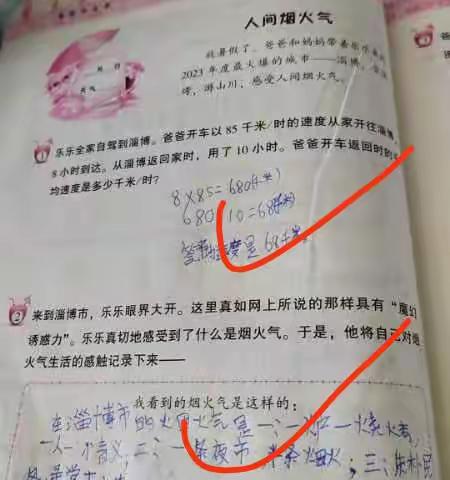 人间烟火气
放暑假了，爸爸和妈妈带着乐乐来到
2023年度最火爆的城市——淄博，
烤，游山川，感受人间烟火气。
月 日
天气
1 乐乐全家自驾到淄博。爸爸开车以85千米/时的速度从家开往淄博，
8小时到达。从淄博返回家时，用了10小时。爸爸开车返回时的
均速度是多少千米/时？
8×85=680(千米)
680 10=68(千米)
答：速度是68千米
2 来到淄博市，乐乐眼界大开。这里真如网上所说的那样具有“魔幻
诱惑力”。乐乐真切地感受到了什么是烟火气。于是，他将自己对烟
火气生活的感触记录下来——
我看到的烟火气是这样的：
在淄博市的火气是
一人一情义，二、一条夜市 烟火；三、
3 爸